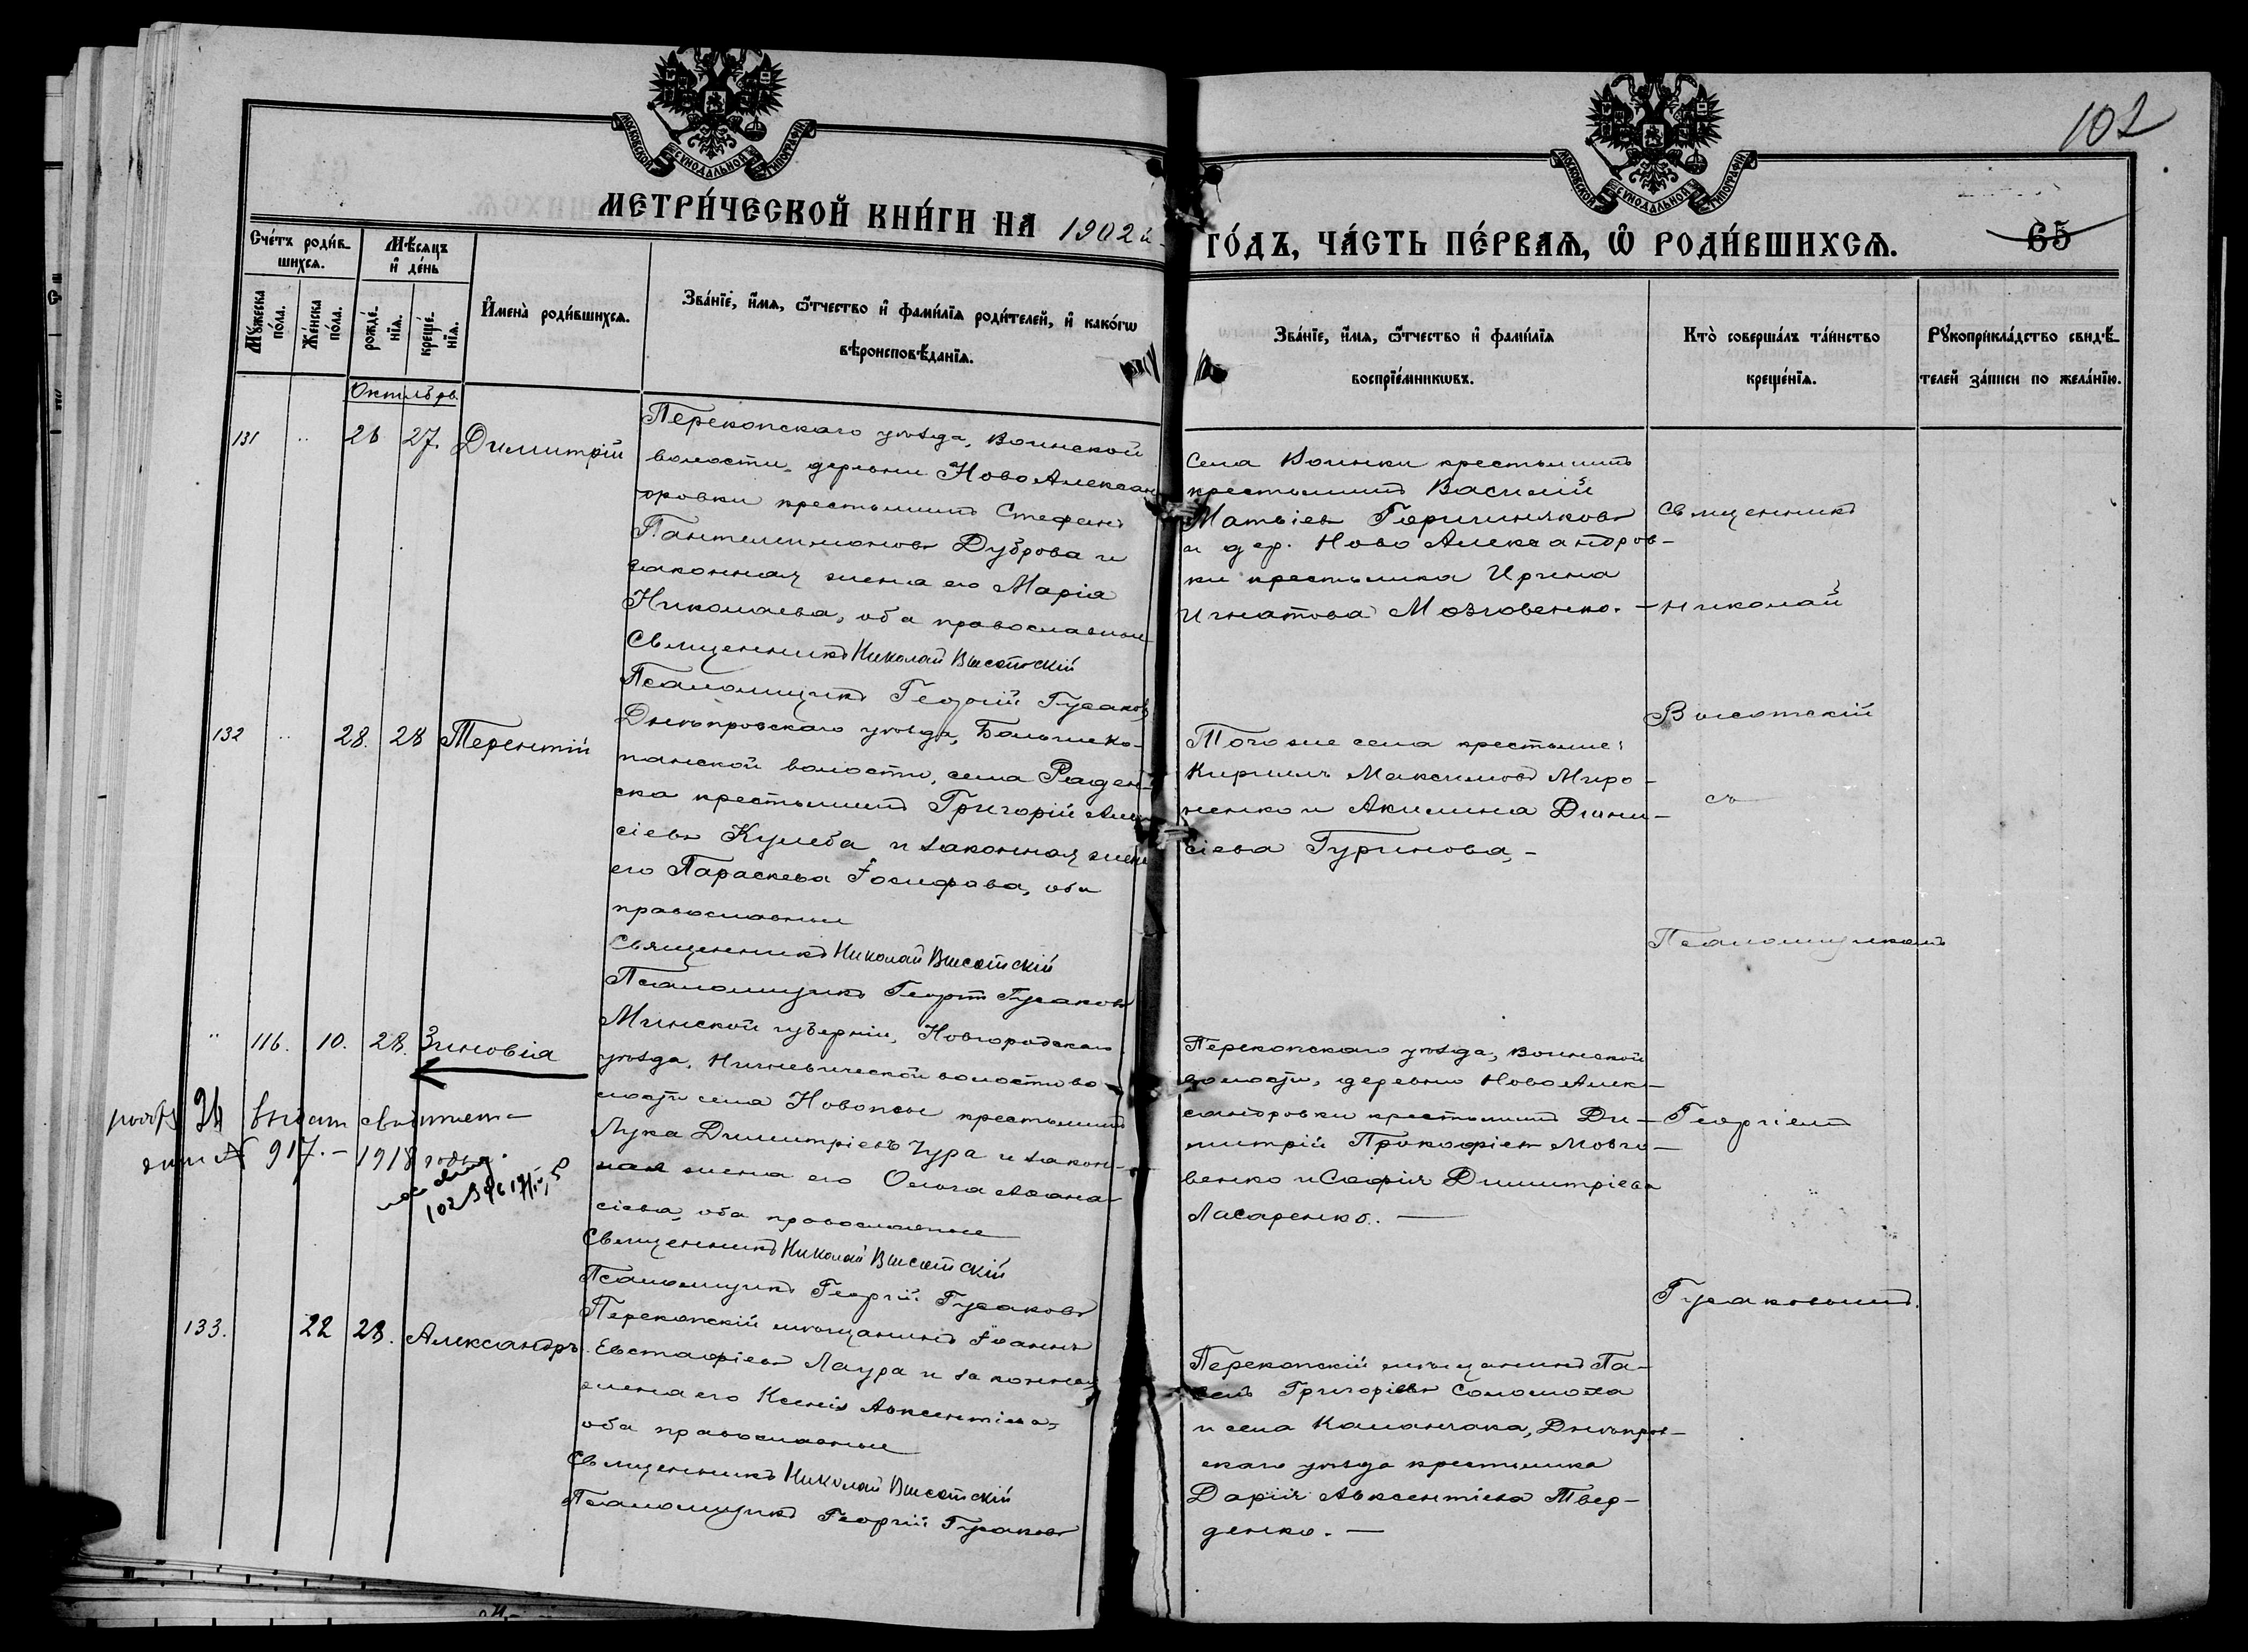 102
МОСКОВСКОЙ СѴНОДАЛЬНОЙ ТИПОГРАФІИ
МОСКОВСКОЙ СѴНОДАЛЬНОЙ ТИПОГРАФІИ
МЕТРИ́ЧЕСКОЙ КНИ́ГИ НА 1902й
ГО́ДЪ, ЧА́СТЬ ПЕ́РВАѦ, Ѡ҆ РОДИ́ВШИХСѦ.
65
Сче́тъ роди́в-
шихсѧ.
Мѣ́сѧцъ
и҆ де́нь
Мꙋ́жеска
по́ла.
Же́нска
по́ла.
рожде́-
нїѧ.
креще́-
нїѧ.
И҆мена̀ роди́вшихсѧ.
Зва́нїе, и҆́мѧ, ѻ҆́тчество и҆ фами́лїѧ роди́телей, и҆ како́гѡ
вѣроисповѣ́данїѧ.
Зва́нїе, и҆́мѧ, ѻ҆́тчество и҆ фами́лїѧ
воспрїе́мникѡвъ.
Кто̀ соверша́лъ та́инство
креще́нїѧ.
Рꙋкоприкла́дство свидѣ́-
телей за́писи по жела́нїю.
Октябрь
131 " 26 27. Димитрій
Перекопскаго уѣзда, Воинской
волости, деревни Ново Алексан
дровки крестьянинъ Стефанъ
Пантелимоновъ Дуброва и
законная жена его Марія
Николаева, оба православные
Священникъ Николай Высотскій
Псаломщикъ Георгій Гусаковъ
Села Воинки крестьянинъ
крестьянинъ Василій
Матвіевъ Горичиняковъ
и дер. Ново Александров-
ки крестьянка Ирина
Игнатова Мозговенко. -
Священникъ
Николай
Высотскій
съ
Псаломщикомъ
Георгіемъ
Гусаковымъ.
132 " 28. 28 Терентій
Днѣпровскаго уѣзда, Больше Ко-
панской волости, села Раден-
ска крестьянинъ Григорій
сіевъ Кулеба и законная жена
его Параскева Іосифова, оба
православные
Священникъ Николай Высотскій
Псаломщикъ Георгій Гусаковъ
Того же села крестьяне:
Кириллъ Максимовъ Миро-
ненко и Акилина Діони-
сіева Гуринова, -
" 116. 10. 28. Зиновіа
Минской губерніи, Новгородскаго
уѣзда, волости во
лости села крестьянинъ
Лука Димитріевъ Чура и закон-
ная жена его Ольга Афана
сіева, оба православные
Священникъ Николай Высотскій
Псаломщикъ Георгій Гусаковъ
Перекопскаго уѣзда, Воинской
волости, деревни Ново Алек-
сандровки крестьянинъ Ди-
митрій Прокофіевъ Мозго-
венко и Софія Димитріева
Ласаренко. -
выдан
№ 917. - 1918 года.
133. 22 28. Александръ.
Перекопскій мѣщанинъ Іоаннъ
Евстафіевъ Лаура и законная
жена его Ксенія Авксентіева,
оба православные
Священникъ Николай Высотскій
Псаломщикъ Георгій Гусаковъ
Перекопскій мѣщанинъ Па-
велъ Григоріевъ Соломоха
и села Каланчака, Днѣпров-
скаго уѣзда крестьянка
Дарія Авксентіева Твер-
денко. -